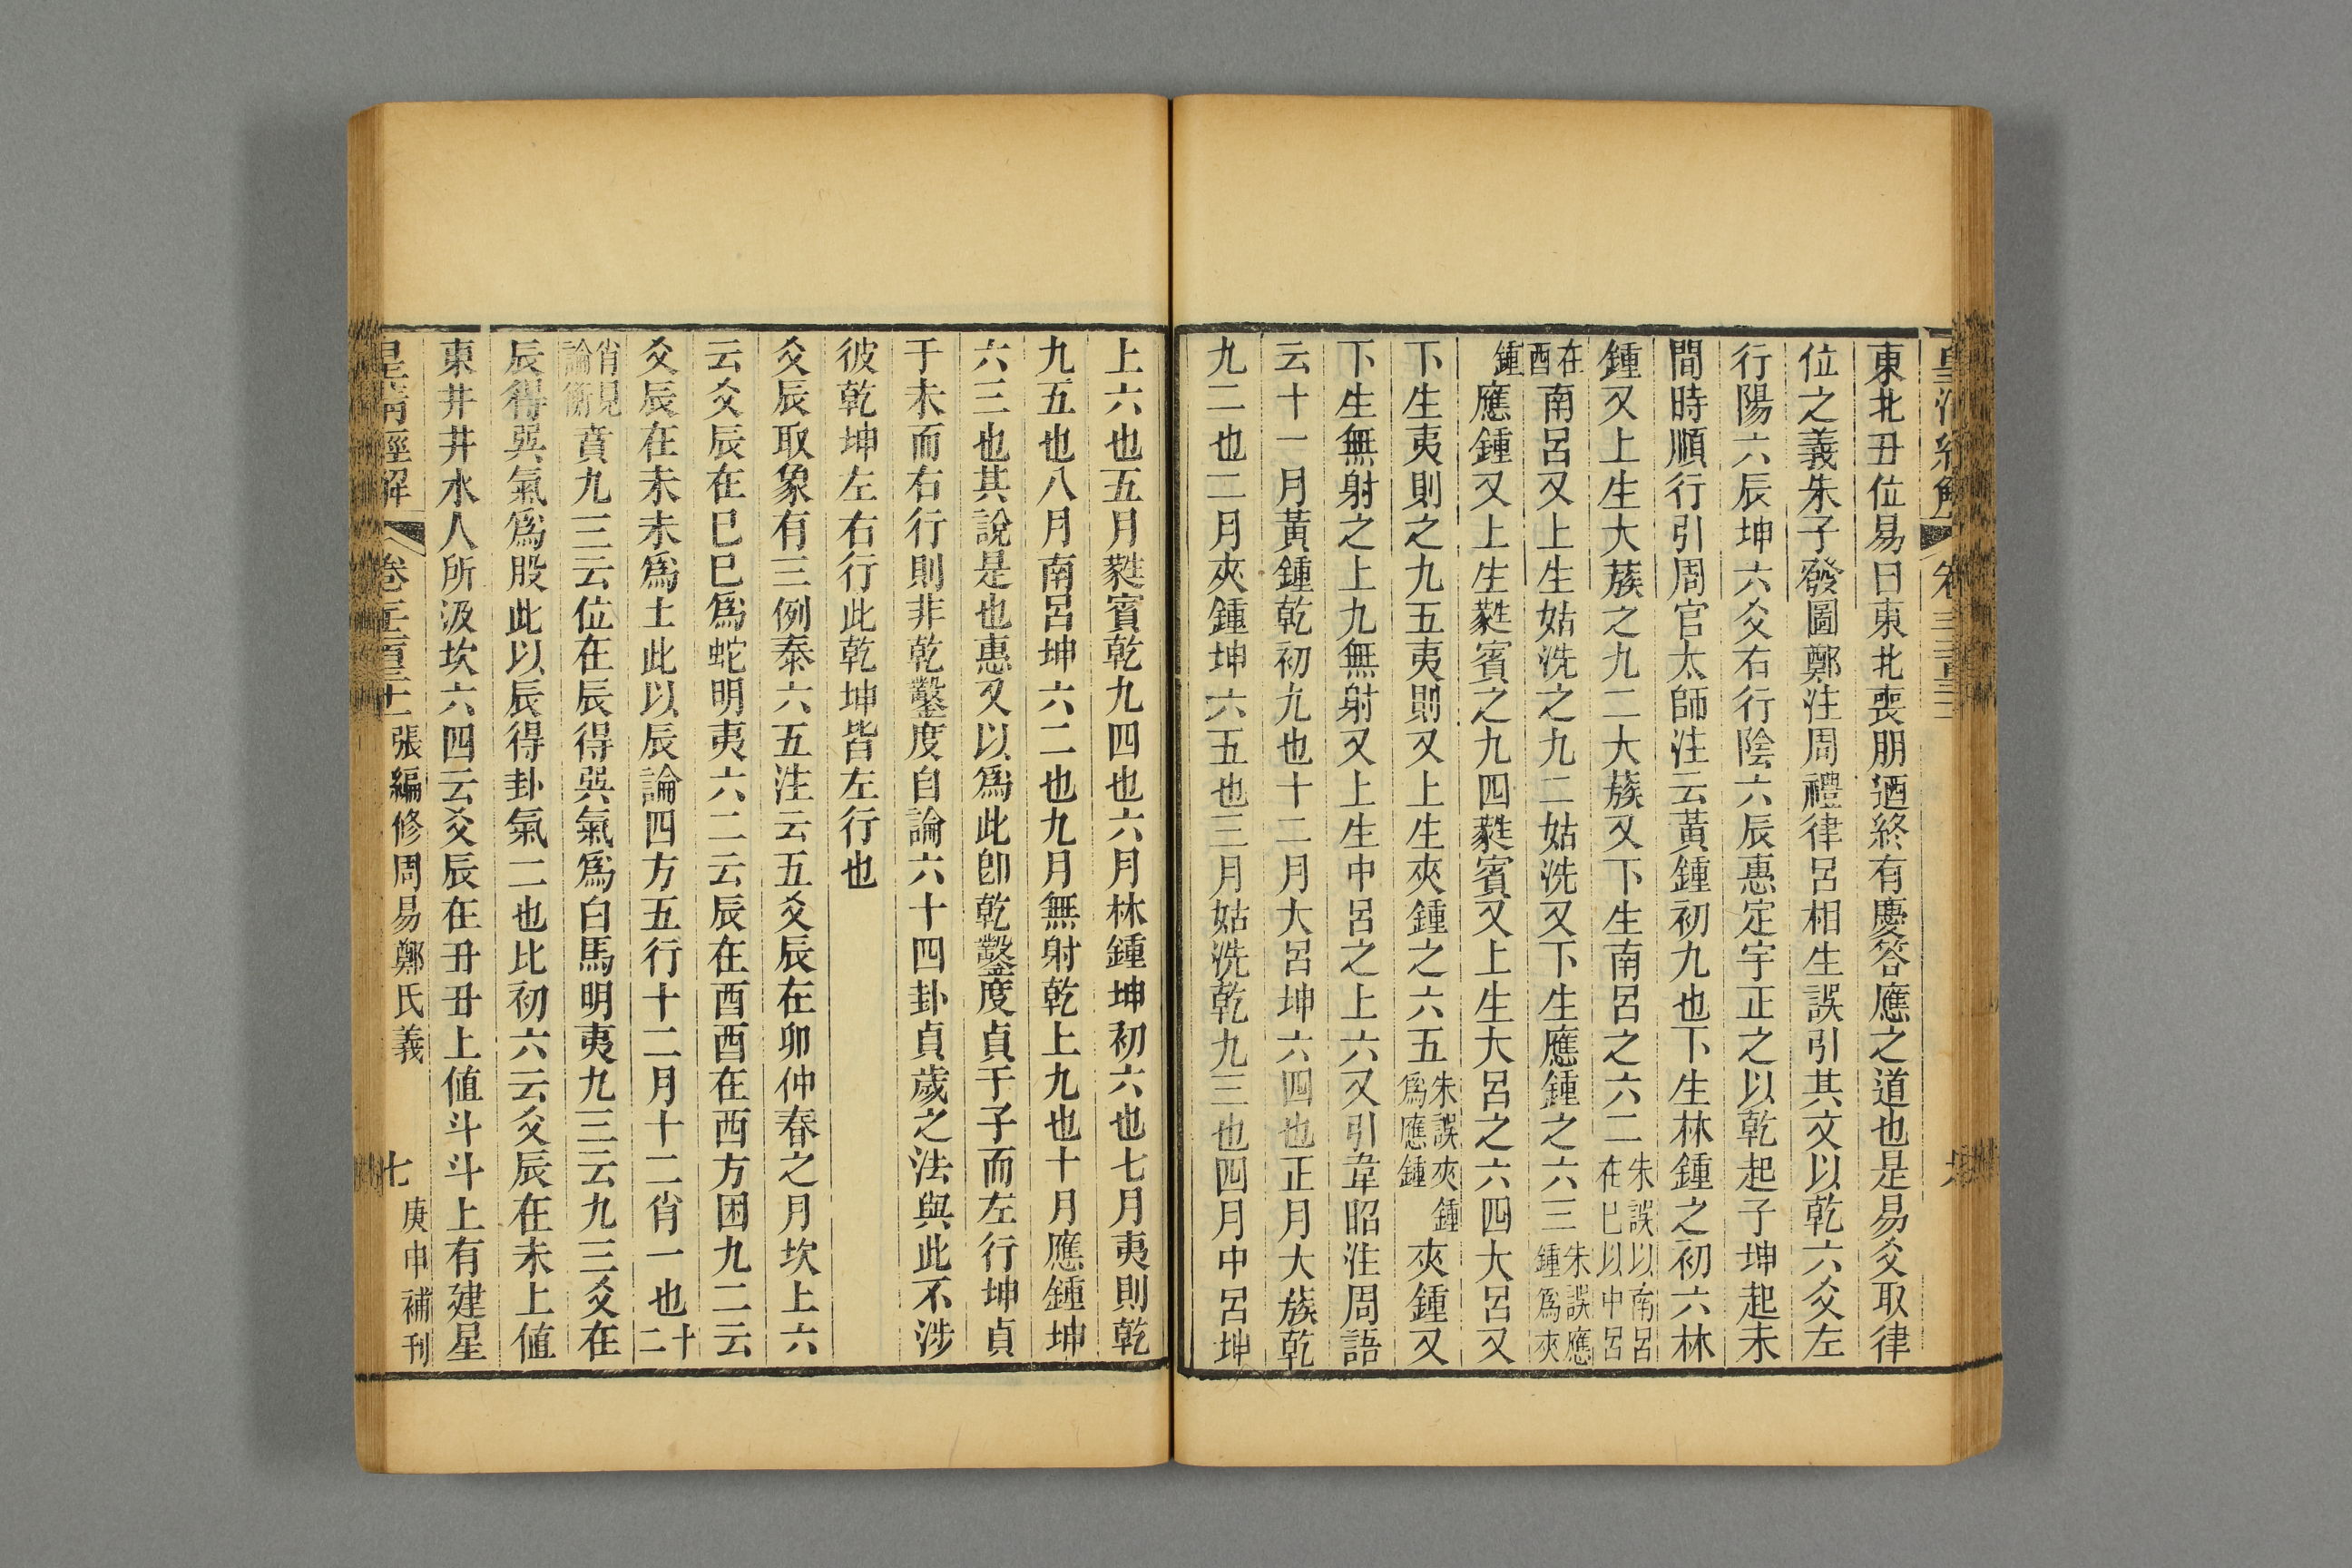 東北丑位易曰東北喪朋迺終有慶答應之道也是易爻取律
位之義朱子發圖鄭注周禮律呂相生誤引其文以乾六爻左
行陽六辰坤六爻右行陰六辰惠定宇正之以乾起子坤起未
間時順行引周官太師注云黃鍾初九也下生林鍾之初六林
鍾又上生大蔟之九二大蔟又下生南呂之六二朱誤以南呂在巳以中呂
在酉南呂又上生姑洗之九二姑洗又下生應鍾之六三朱誤應鍾爲夾
鍾應鍾又上生蕤賓之九四蕤賓又上生大呂之六四大呂又
下生夷則之九五夷則又上生夾鍾之六五朱誤夾鍾爲應鍾夾鍾又
下生無射之上九無射又上生中呂之上六又引韋昭注周語
云十一月黃鍾乾初九也十二月大呂坤六四也正月大蔟乾
九二也二月夾鍾坤六五也三月姑洗乾九三也四月中呂坤
上六也五月蕤賓乾九四也六月林鍾坤初六也七月夷則乾
九五也八月南呂坤六二也九月無射乾上九也十月應鍾坤
六三也其說是也惠又以爲此卽乾鑿度貞于子而左行坤貞
于未而右行則非乾鑿度自論六十四卦貞歲之法與此不涉
彼乾坤左右行此乾坤皆左行也
爻辰取象有三例泰六五注云五爻辰在卯仲春之月坎上六
云爻辰在巳巳爲蛇明夷六二云辰在酉酉在西方困九二云
爻辰在未未爲土此以辰論四方五行十二月十二肖一也十二
肖見論衡賁九三云位在辰得巽氣爲白馬明夷九三云九三爻在
辰得巽氣爲股此以辰得卦氣二也比初六云爻辰在未上値
東井井水人所汲坎六四云爻辰在丑丑上値斗斗上有建星
皇清經解 卷 張編修周易鄭氏義 七 庚申補刊